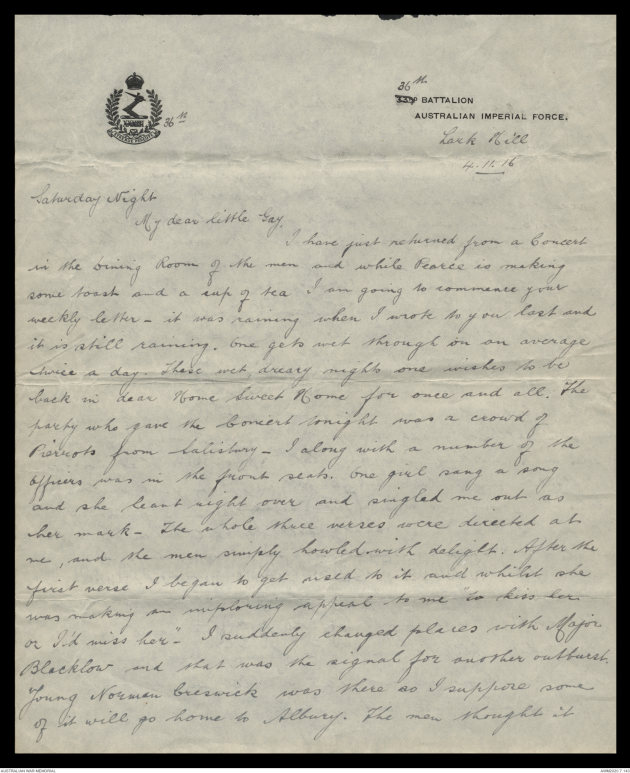 36th
36th BATTALION
AUSTRALIAN IMPERIAL FORCE.
Lark Hill
4.11.16
Saturday Night
My dear little Gay,
I have just returned from a Concert
in the Dining Room of the men and while Pearce is making
some toast and a cup of tea I am going to commence your
weekly letter - it was raining when I wrote to you last and
it is still raining. One gets wet through on an average
twice a day. These wet, dreary nights one wishes to be
back in dear Home Sweet Home for once and all. The
party who gave the Concert tonight was a crowd of
Pierrots from Salisbury - I along with a number of the
Officers was in the front seats. One girl sang a song
and she leant right over and singled me out as
her mark - The whole three verses were directed at
me, and the men simply howled with delight. After the
first verse I began to get used to it and whilst she
was making an imploring appeal to me "to kiss her
or I'd miss her" - I suddenly changed places with Major
Blacklow and that was the signal for another outburst.
Young Norman Creswick was there so I suppose some
of it will go home to Albury. The men thought it
AUSTRALIAN WAR MEMORIAL